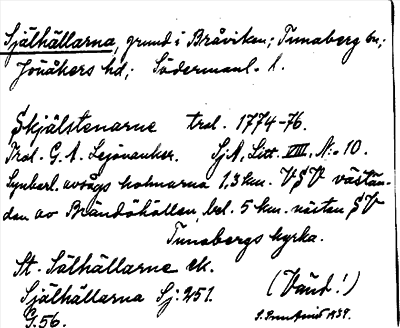 Själhällarna, grund i Bråviken; Tunaberg sn;
Jönåkers hd; Södermanl. l.
Skjälstenarne trol. 1774-76.
Trol. G. A. Lejonanker. SjA, Litt. VIII, N:o 10.
Synbarl. avsågs holmarna 1.3 km. VSV västän-
den av Brändöhällen, bel. 5 km. nästen SV
Tunabergs kyrka.
St. Sälhällarne ek.
Själhällarna Sj: 251. (Vänd!)
G. 56. 1939.